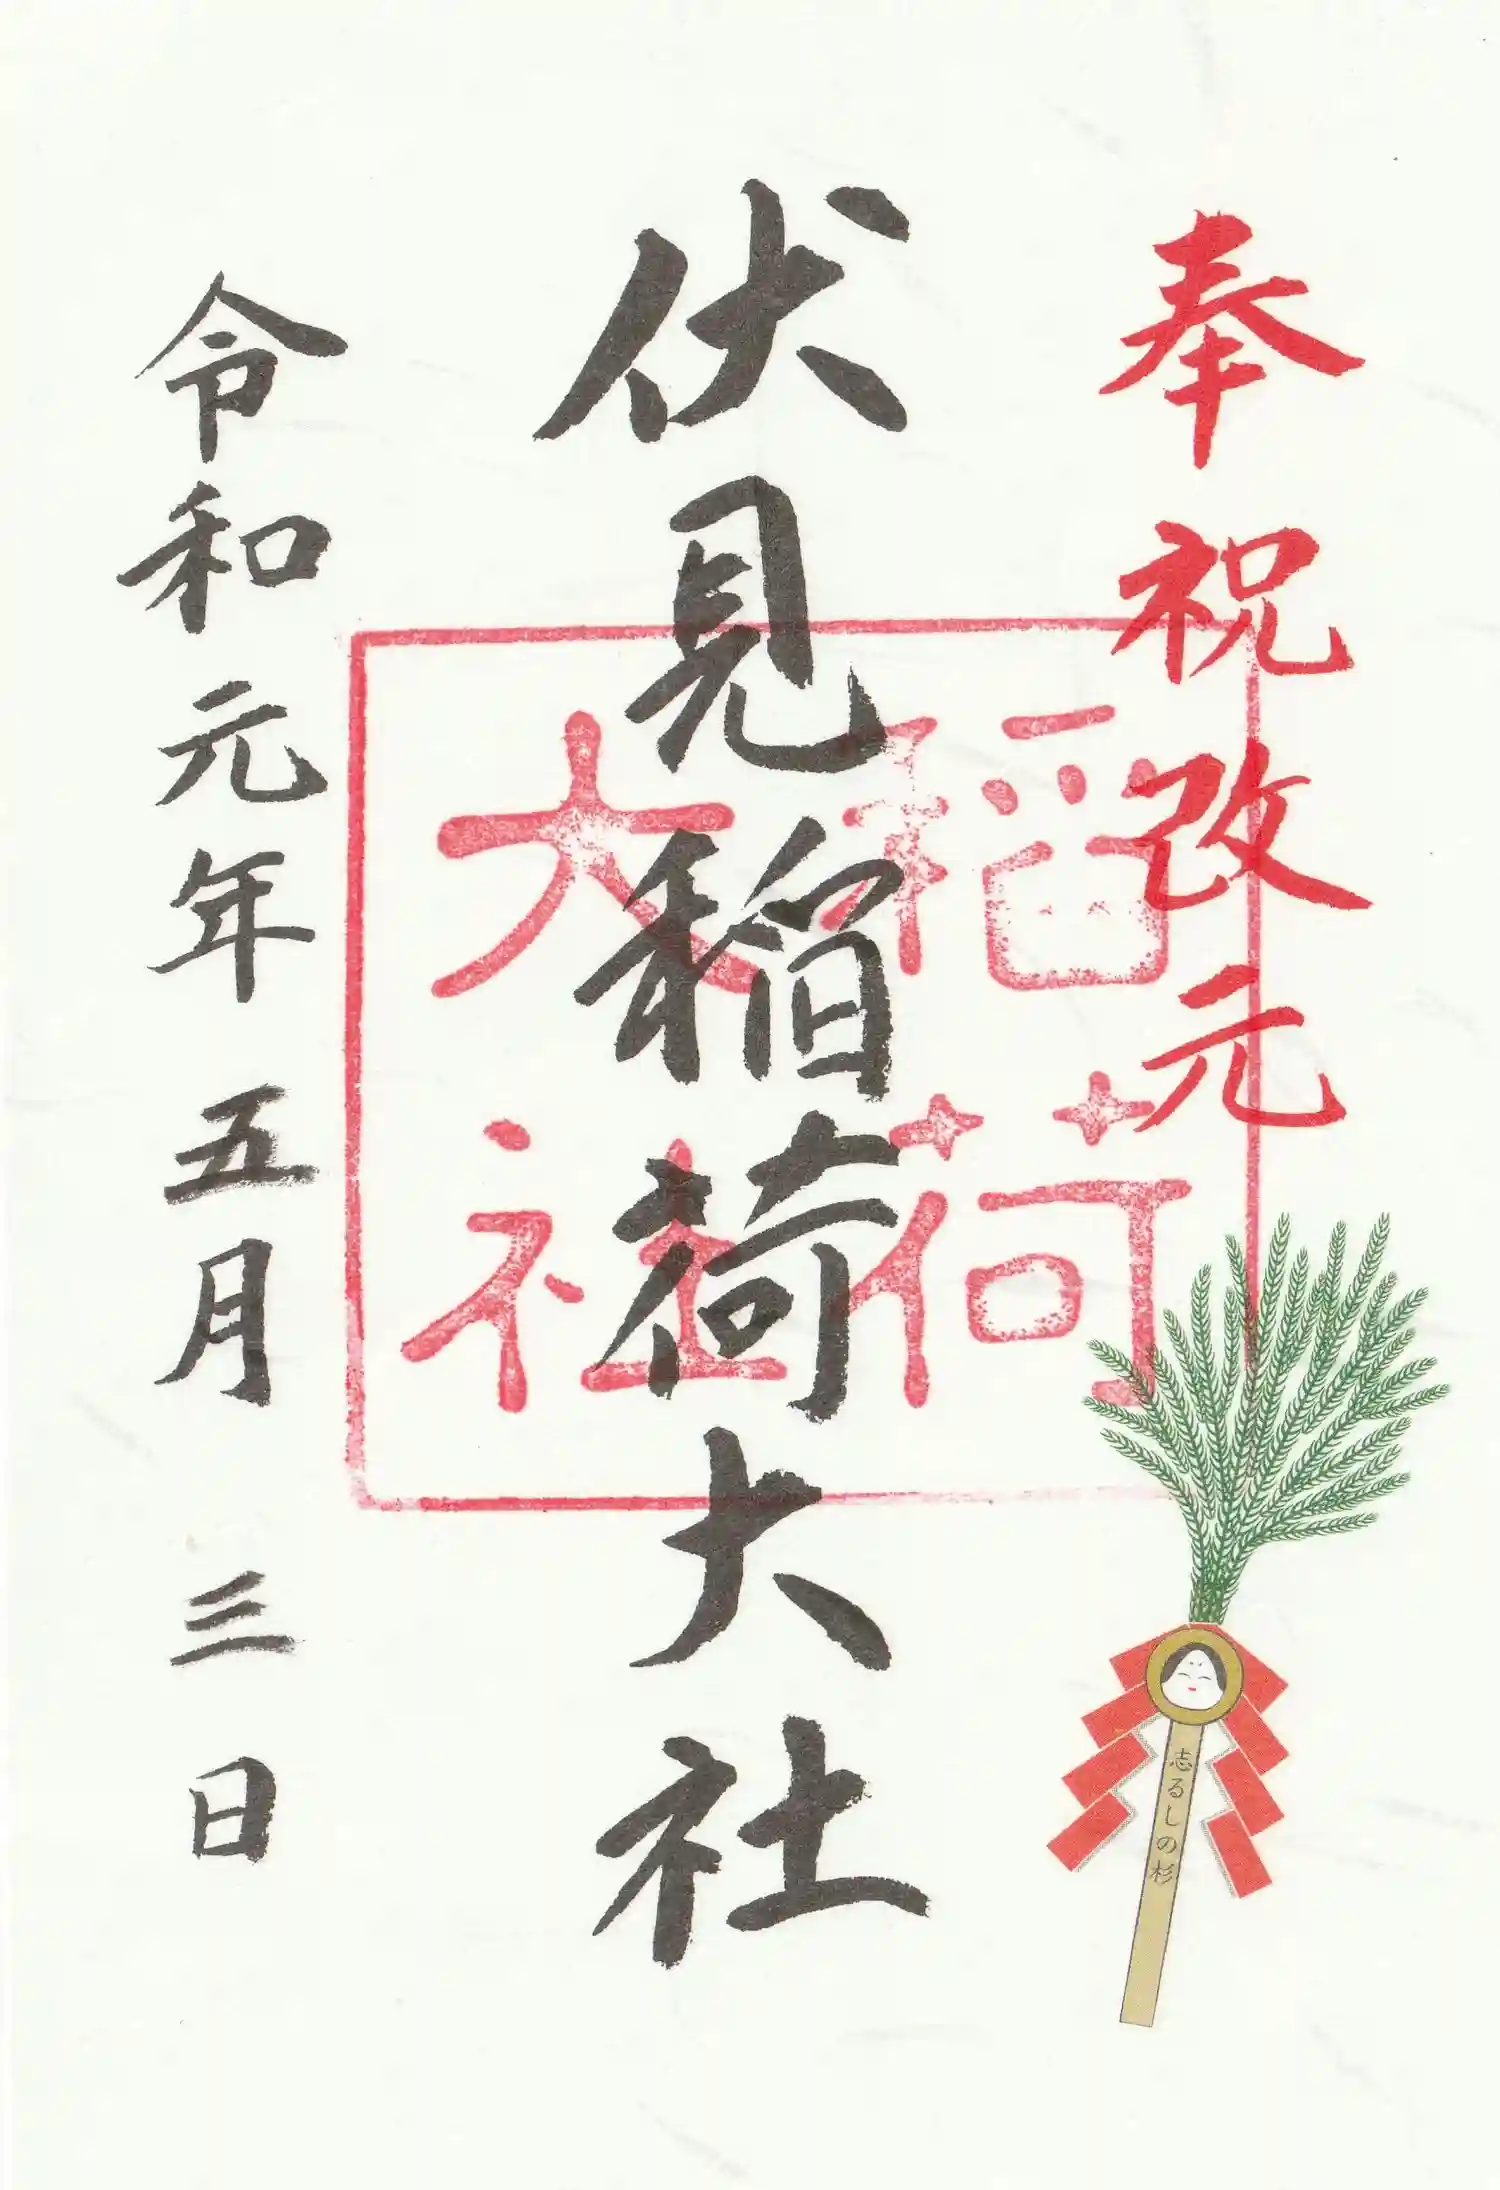 奉祝改元
伏見稲荷大社
稲荷
大社
令和元年五月三日
志るしの杉